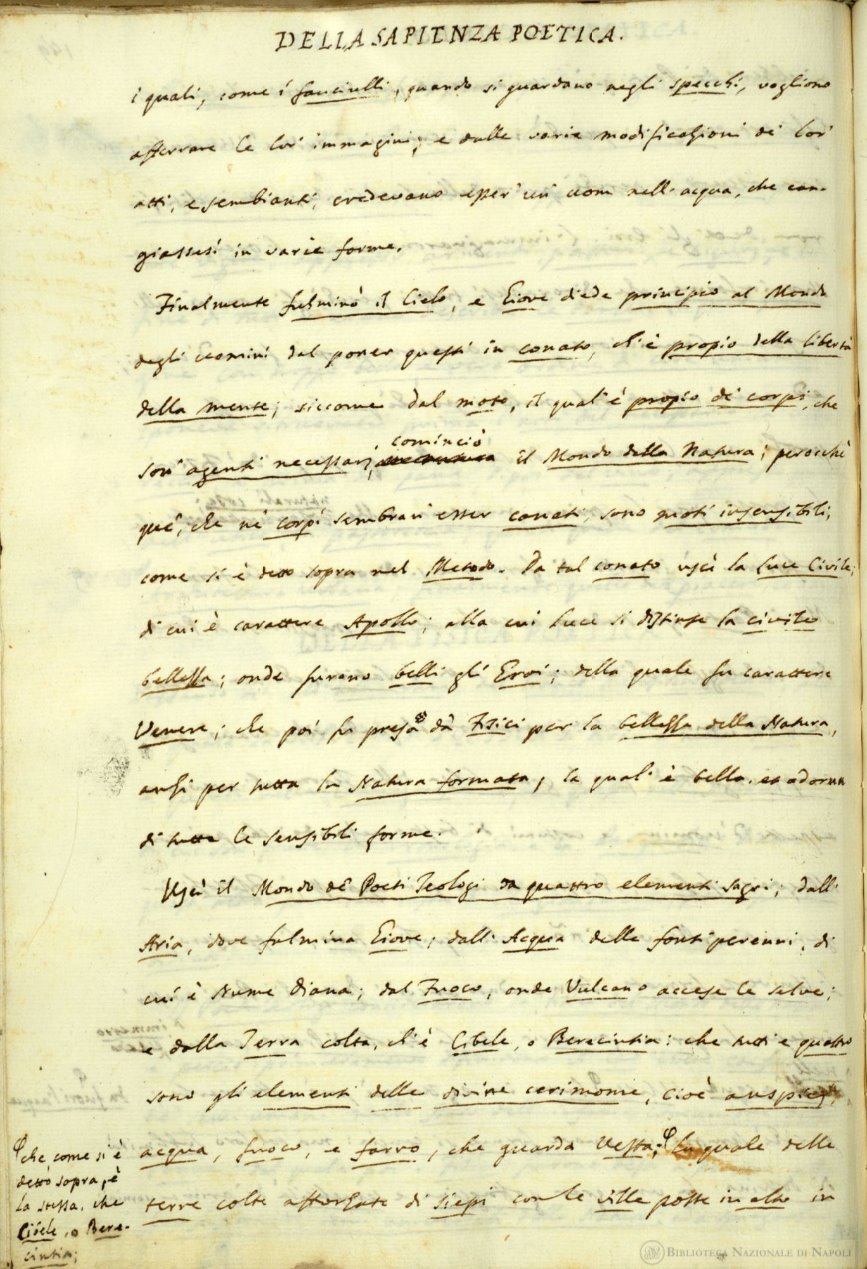 DELLA SAPIENZA POETICA.
i quali, come i fanciulli, quando si guardano negli specchi, vogliono
afferrare le lor' immagini; e dalle varie modificazioni de' lor'
atti, e sembianti, credevano esser' un' uom nell'acqua, che can-
giassesi in varie forme.
Finalmente fulminò il Cielo, e Giove diede principio al Mondo
degli uomini dal poner questi in conato, ch'è propio della libertà
della mente; siccome dal moto, il qual' è propio de' corpi, che
son' agenti necessarj, cominciò il Mondo della Natura; perocchè
que', che ne' corpi sembran' esser conati, sono moti insensibili,
come si è detto sopra nel Metodo. Da tal conato uscì la luce Civile,
di cui è carattere Apollo; alla cui luce si distinse la civile
bellezza; onde furono belli gli Eroi; della quale fu carattere
Venere; che poi fu presa dà Fisici per la bellezza della Natura,
anzi per tutta la Natura formata, la qual' è bella, et adorna
di tutte le sensibili forme.
Uscì il Mondo de' Poeti Teologi da quattro elementi sagri; dall'
Aria, dove fulmina Giove; dall' Acqua delle fonti perenni, di
cui è Nume Diana; dal Fuoco, onde Vulcano accese le selve;
e dalla Terra colta, ch'è Cibele, o Berecintia: che tutti e quattro
sono gli elementi delle divine cerimonie, cioè auspicj,
acqua, fuoco, e farro, che guarda Vesta; la quale delle
terre colte afforzate di siepi con le ville poste in alto in
che come si è
detto sopra, è
la stessa, che
Cibele, o Bere-
cintia;
BIBLIOTECA NAZIONALE DI NAPOLI